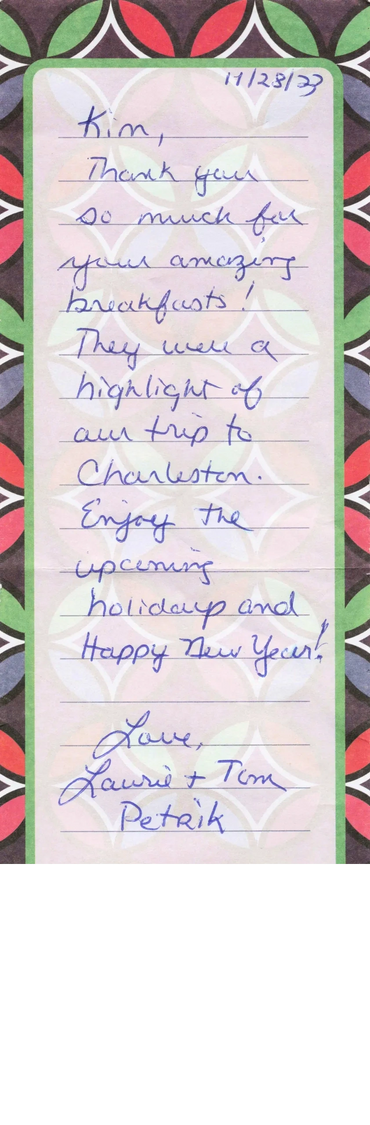 11/28/23
Kim,
Thank you
so much for
your amazing
breakfasts!
They were a
highlight of
our trip to
Charleston.
Enjoy the
upcoming
holidays and
Happy New Year!
Love,
Laurie + Tom
Petrik